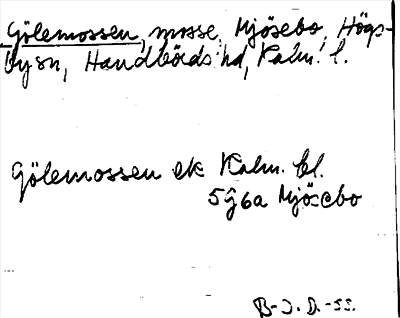 Gölemossen, mosse, Mjösebo, Högs-
bysn, Handbörds hd, Kalm. l.
Gölemossen ek Kalm. bl.
5g6a Mjösebo
B-J. D. -55.